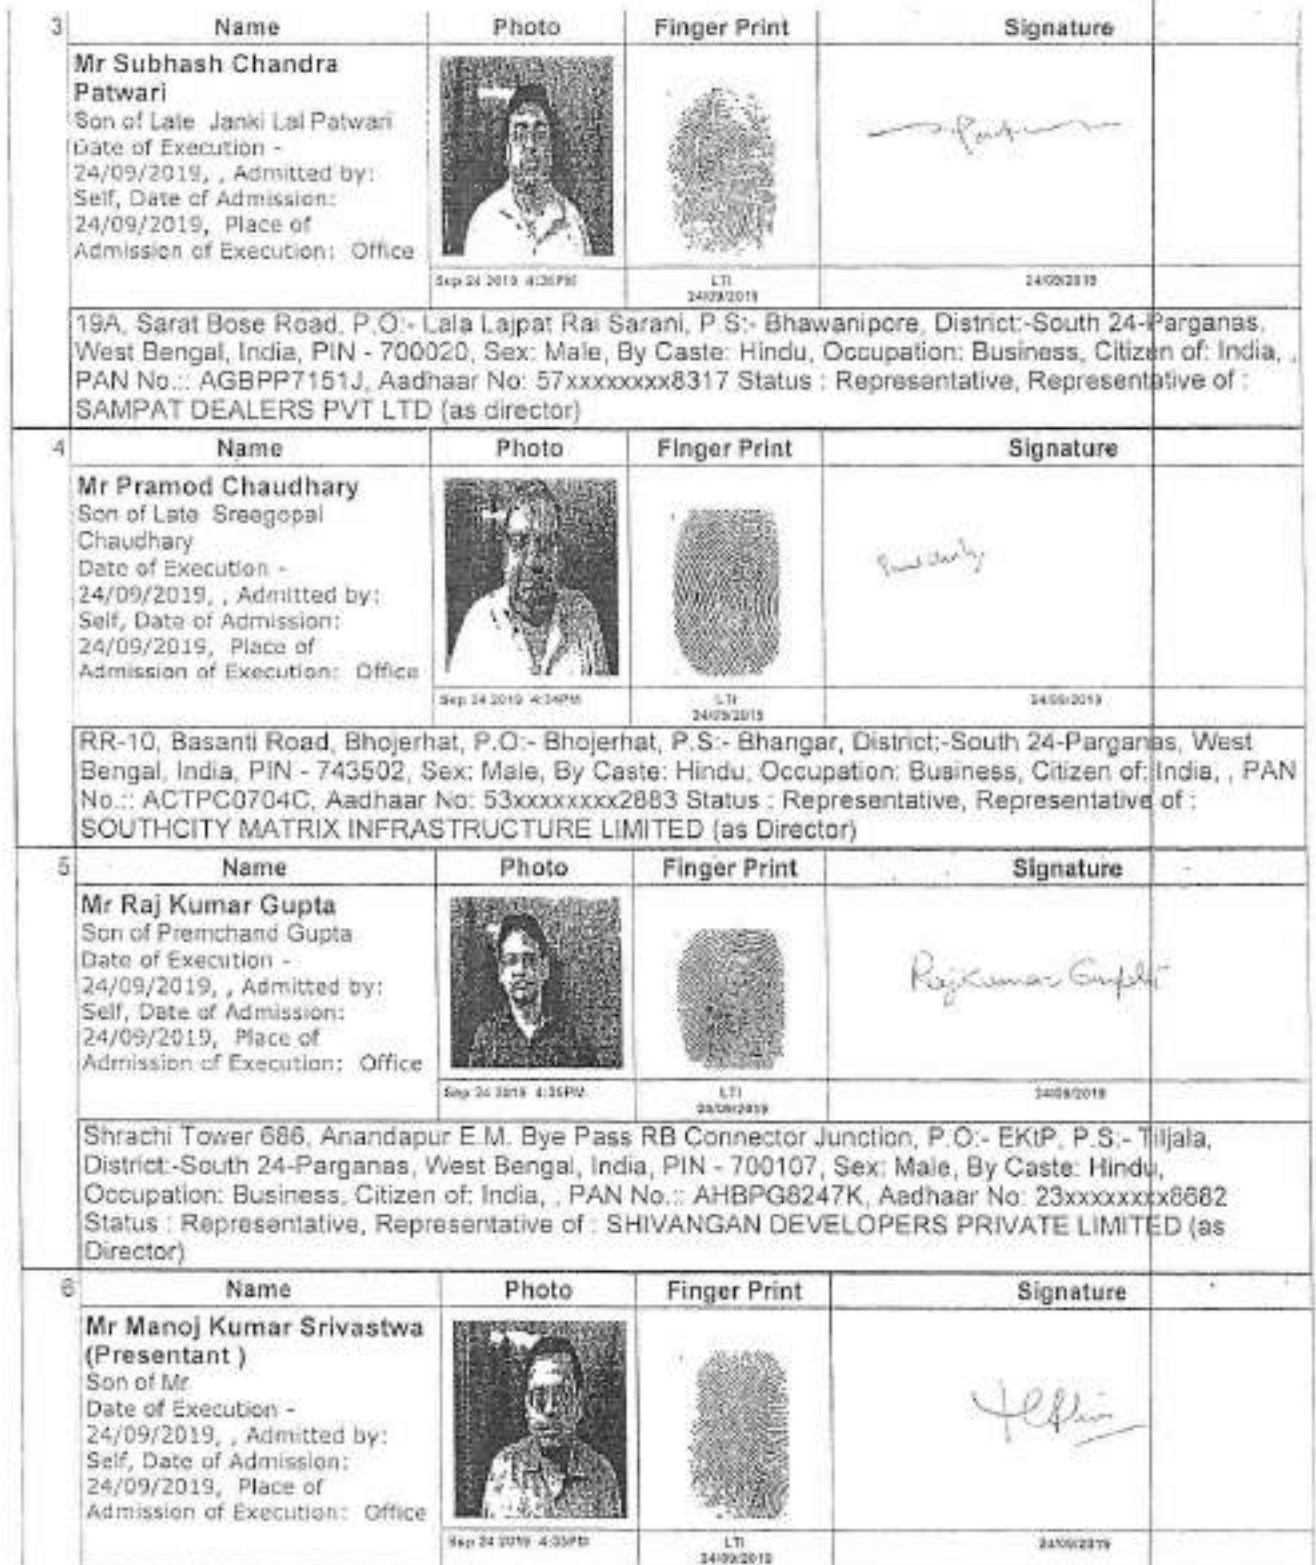 3 Name Photo Finger Print Signature
Mr Subhash Chandra
Patwari
Son of Late Janki Lal Patwari
Date of Execution -
24/09/2019, , Admitted by:
Self, Date of Admission:
24/09/2019, Place of
Admission of Execution: Office
Sep 24 2019 4:35PM LTI 24/09/2019
24/09/2019
19A, Sarat Bose Road, P.O:- Lala Lajpat Rai Sarani, P.S:- Bhawanipore, District:-South 24-Parganas,
West Bengal, India, PIN - 700020, Sex: Male, By Caste: Hindu, Occupation: Business, Citizen of: India, ,
PAN No.:: AGBPP7151J, Aadhaar No: 57xxxxxxxx8317 Status : Representative, Representative of :
SAMPAT DEALERS PVT LTD (as director)
4 Name Photo Finger Print Signature
Mr Pramod Chaudhary
Son of Late Sreegopal
Chaudhary
Date of Execution -
24/09/2019, , Admitted by:
Self, Date of Admission:
24/09/2019, Place of
Admission of Execution: Office
Sep 24 2019 4:34PM LTI 24/09/2019
24/09/2019
RR-10, Basanti Road, Bhojerhat, P.O:- Bhojerhat, P.S:- Bhangar, District:-South 24-Parganas, West
Bengal, India, PIN - 743502, Sex: Male, By Caste: Hindu, Occupation: Business, Citizen of: India, , PAN
No.:: ACTPC0704C, Aadhaar No: 53xxxxxxxx2883 Status : Representative, Representative of :
SOUTHCITY MATRIX INFRASTRUCTURE LIMITED (as Director)
5 Name Photo Finger Print Signature
Mr Raj Kumar Gupta
Son of Premchand Gupta
Date of Execution -
24/09/2019, , Admitted by:
Self, Date of Admission:
24/09/2019, Place of
Admission of Execution: Office
Rajkumar Gupta
Sep 24 2019 4:35PM LTI 24/09/2019
24/09/2019
Shrachi Tower 686, Anandapur E.M. Bye Pass RB Connector Junction, P.O:- EKtP, P.S:- Tiljala,
District:-South 24-Parganas, West Bengal, India, PIN - 700107, Sex: Male, By Caste: Hindu,
Occupation: Business, Citizen of: India, , PAN No.:: AHBPG8247K, Aadhaar No: 23xxxxxxxx8682
Status : Representative, Representative of : SHIVANGAN DEVELOPERS PRIVATE LIMITED (as
Director)
6 Name Photo Finger Print Signature
Mr Manoj Kumar Srivastwa
(Presentant )
Son of Mr
Date of Execution -
24/09/2019, , Admitted by:
Self, Date of Admission:
24/09/2019, Place of
Admission of Execution: Office
Sep 24 2019 4:35PM LTI 24/09/2019
24/09/2019